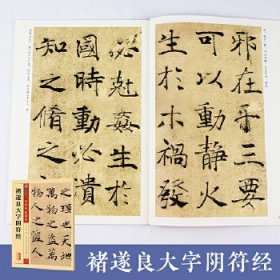 邪在乎三要
可以動靜火
生於木禍發
必尅姦生於
國時動必潰
知之脩之
之理也天地
萬物之盜萬
物人之盜人
褚遂良大字阴符经
褚遂良大字阴符经